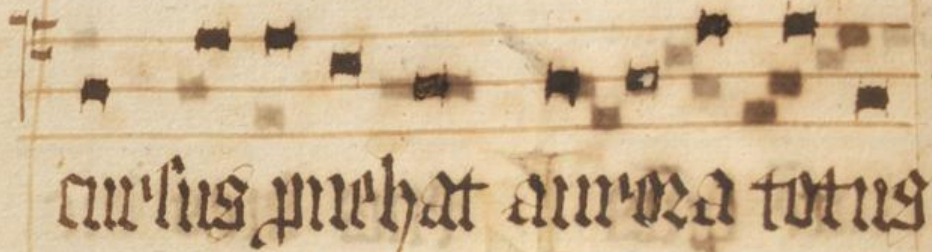 cursus puehat aurora totus